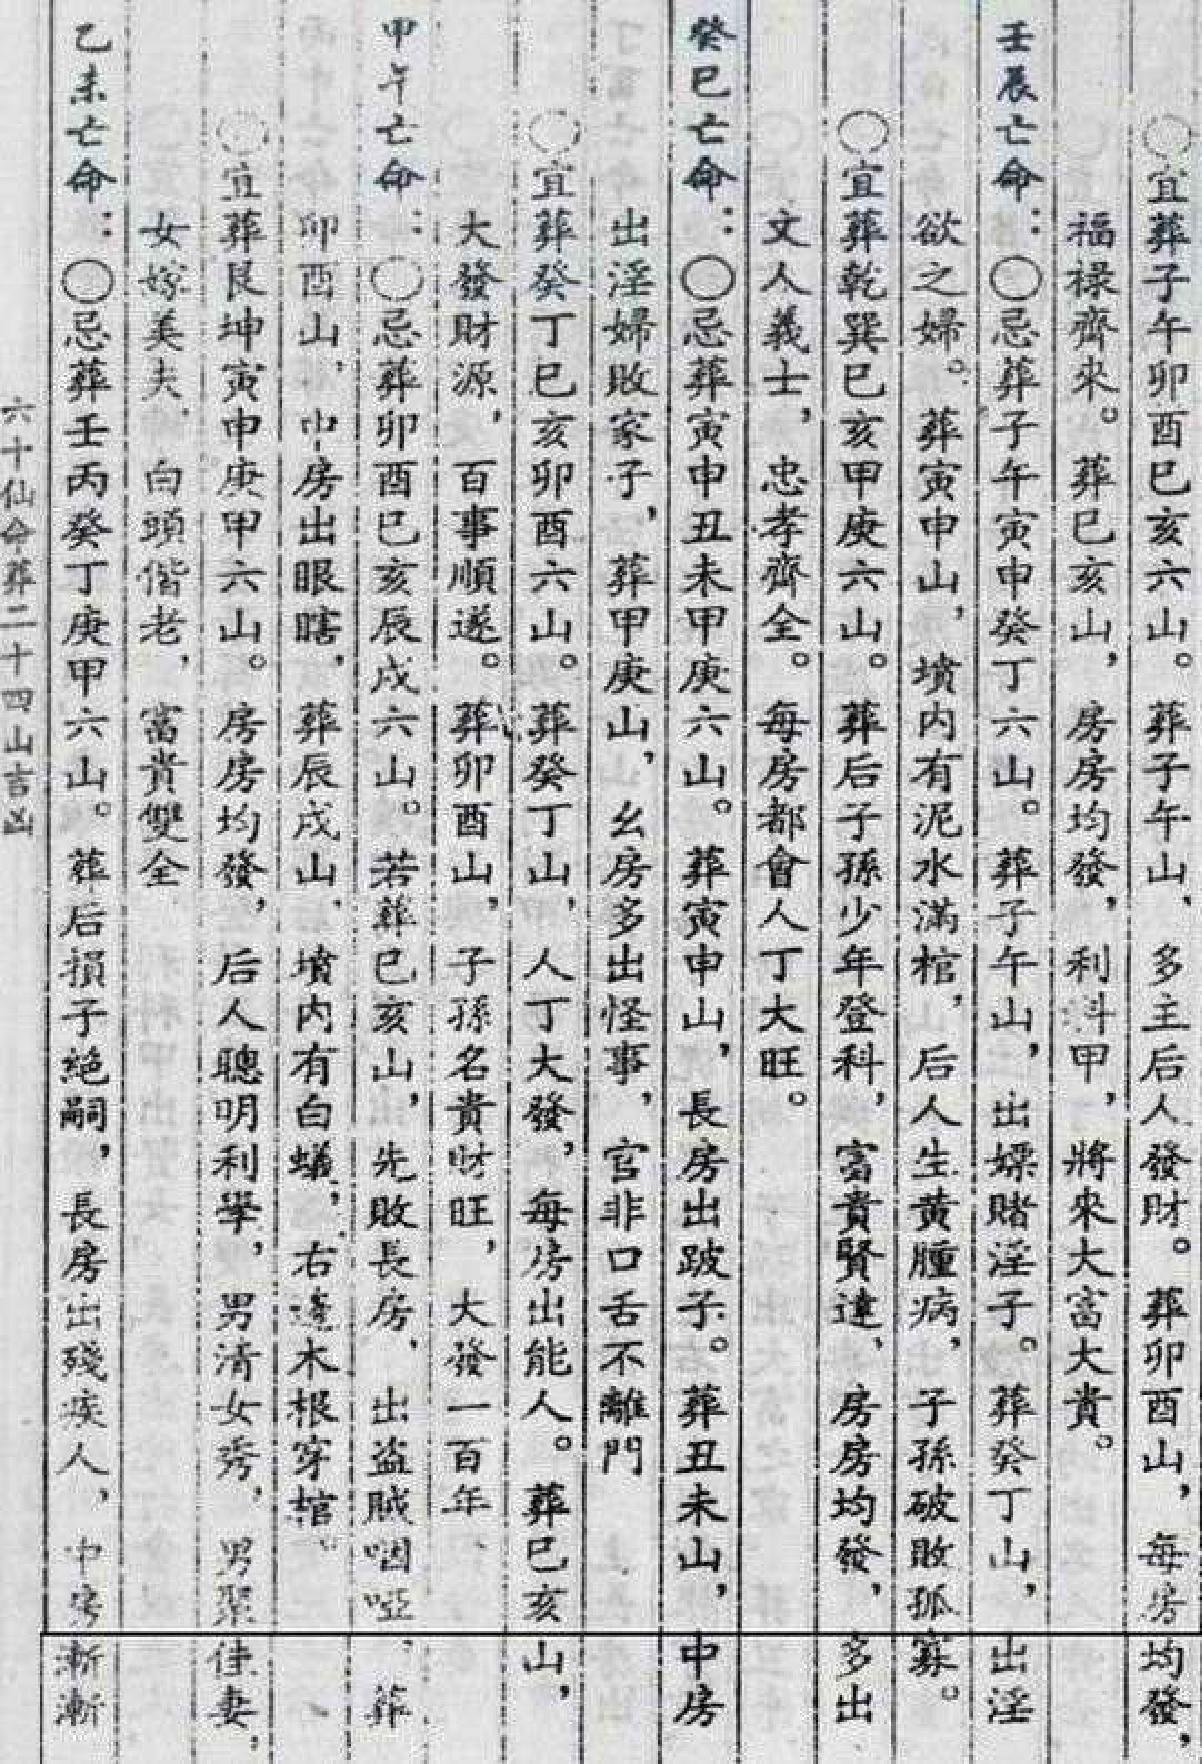 ○宜葬子午卯酉巳亥六山。葬子午山、多主后人發財。葬卯酉山，每房均發，
福禄齊來。葬巳亥山，房房均發，利科甲，將來大富大貴。
壬辰亡命：○忌葬子午寅申癸丁六山。葬子午山，出嫖賭淫子。葬癸丁山，出淫
欲之婦。葬寅申山，墳内有泥水滿棺，后人生黄腫病，子孫破敗孤寡。
○宜葬乾巽巳亥甲庚六山。葬后子孫少年登科，富貴賢達、房房均發，多出
文人義士，忠孝齊全。每房都會人丁大旺。
癸巳亡命：○忌葬寅申丑未甲庚六山。葬寅申山，長房出跛子。葬丑未山，中房
出淫婦敗家子，葬甲庚山，幺房多出怪事，官非口舌不離門
○宜葬癸丁巳亥卯酉六山。葬癸丁山，人丁大發，每房出能人。葬巳亥山，
大發財源，百事順遂。葬卯酉山，子孫名貴財旺，大發一百年
甲午亡命：○忌葬卯酉巳亥辰戌六山。若葬巳亥山，先敗長房、出盗賊啞、葬
卯酉山，中房出眼瞎，葬辰戌山、墳内有白蟻，右逢木根穿棺。
○宜葬艮坤寅申庚甲六山。房房均發，后人聰明利舉，男清女秀，男聚佳妻，
女嫁美夫，白頭偕老，富貴雙全
乙未亡命：○忌葬壬丙癸丁庚甲六山。葬后損子絶嗣，長房出殘疾人，中房漸漸
六十仙命葬二十四山吉凶